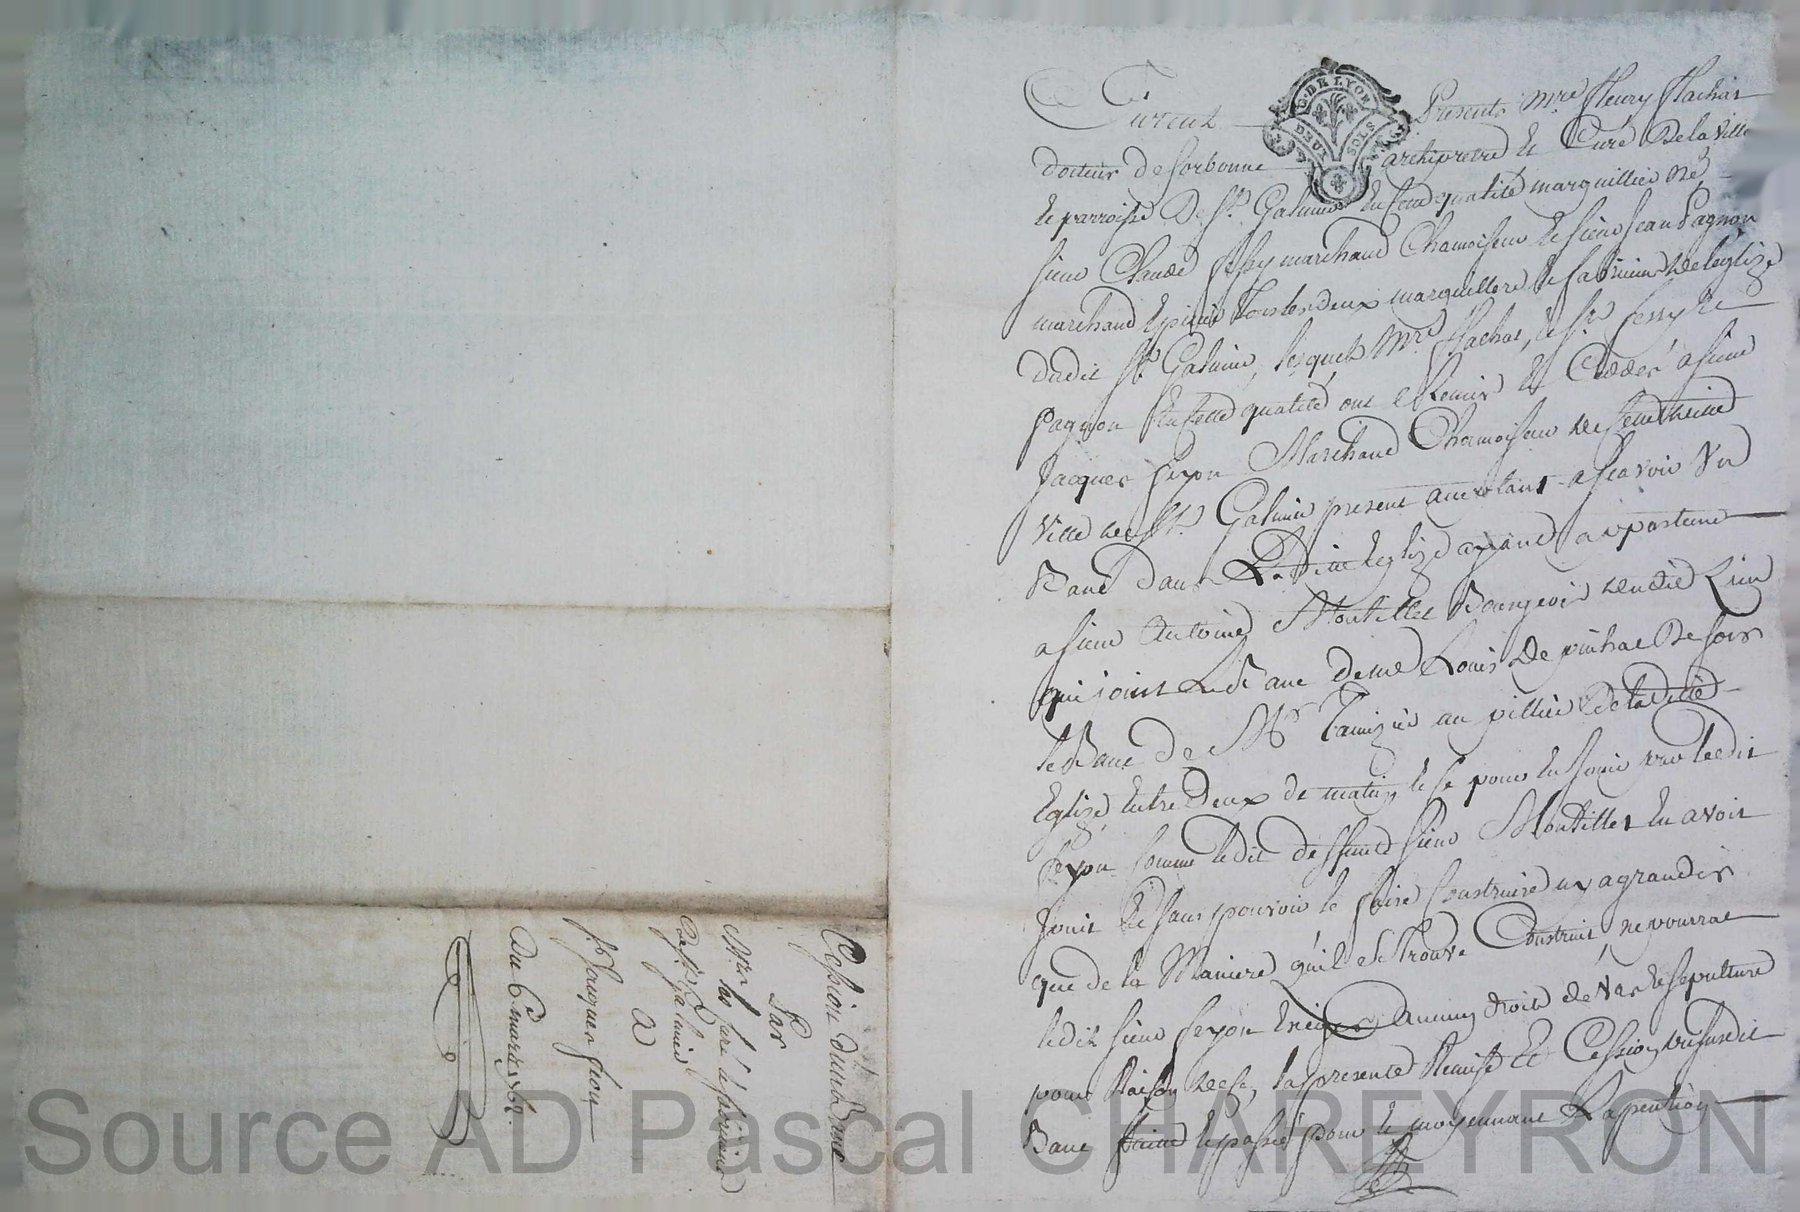 Cession d'un Banc
Par
Mrs les Curé
De St Galmier
A
Sr Jacques
Du 6e mars
Furent Presents Mre Fleury Flachat
docteur de Sorbonne archiprêtre et Curé De la Ville
et parroisse De St Galmier En cette qualité marguillier né
sieur Claude marchand Chamoiseur et sieur Jean Pagnon
marchand Epicier Tous les deux marguilliers de l'eglize
dudit St Galmier, lesquels Mre Flachat, et
Pagnon En cette qualité ont Remis et Ceddés a sieur
Jacques Marchand Chamoiseur de cette
Ville de St Galmier present acceptant a scavoir Un
Banc dans Ladite Eglize ayant appartenu
a sieur Antoine Montillet Bourgeois dudit Lieu
qui joint Le Banc de Louis De
le Banc de Mr au pillier De ladite
Eglize Entre deux de matin et se pour En jouir par ledit
comme ledit deffunct sieur Montillet En avoit
Jouit Et sans pouvoir le faire Construire ny agrandir
que de la Maniere qu'il se trouve Construit ne pourrat
ledit sieur Exiger Aucun droit de Vas et sepulture
pour Raison de ce, la presente Remise Et Cession du susdit
Banc faitte et passée pour et moyennant La pention
Source AD Pascal CHAREYRON
G. DE LYON
DEUX SOLS